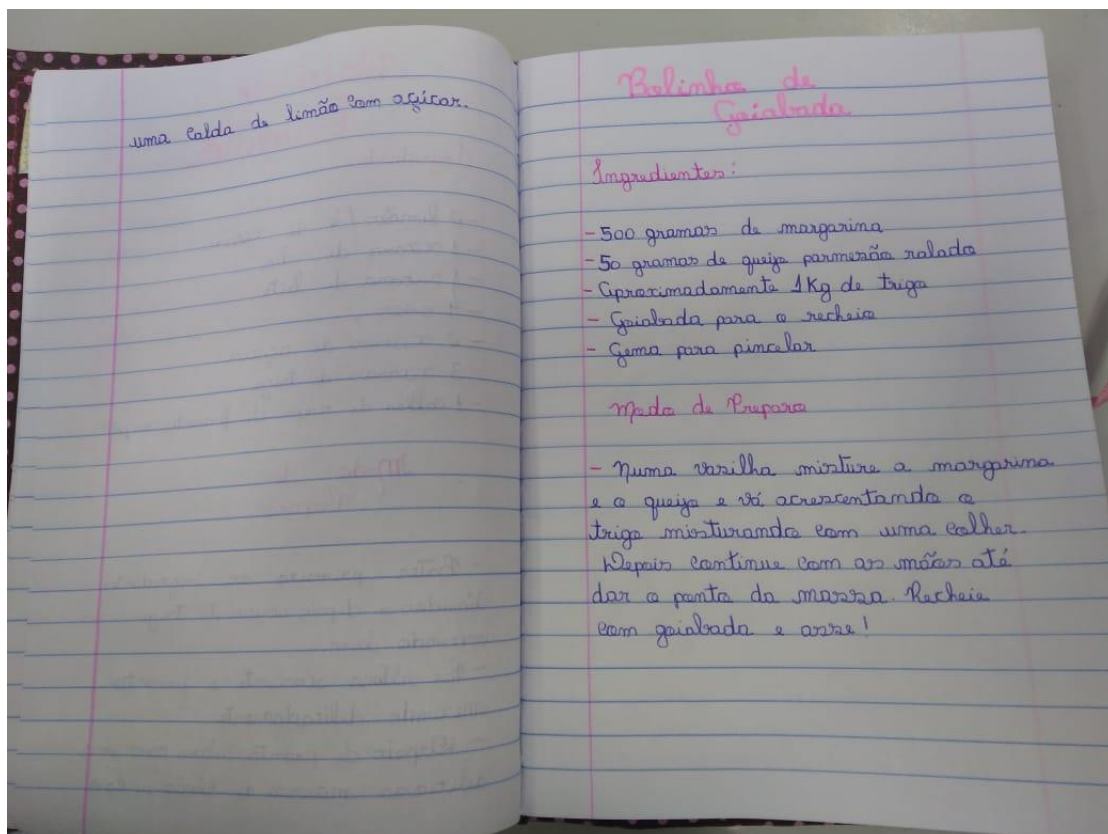 uma calda de limão com açúcar.
Bolinho de
Goiabada
Ingredientes:
- 500 gramas de margarina
- 50 gramas de queijo parmesão ralado
- Aproximadamente 1Kg de trigo
- Goiabada para o recheio
- Gema para pincelar
Modo de Preparo
- Numa vasilha misture a margarina
e o queijo e vá acrescentando o
trigo misturando com uma colher.
Depois continue com as mãos até
dar o ponto da massa. Recheie
com goiabada e asse!